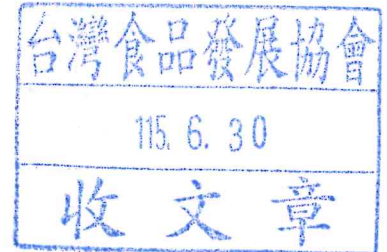 台灣食品發展協會
115. 6. 30
收文章